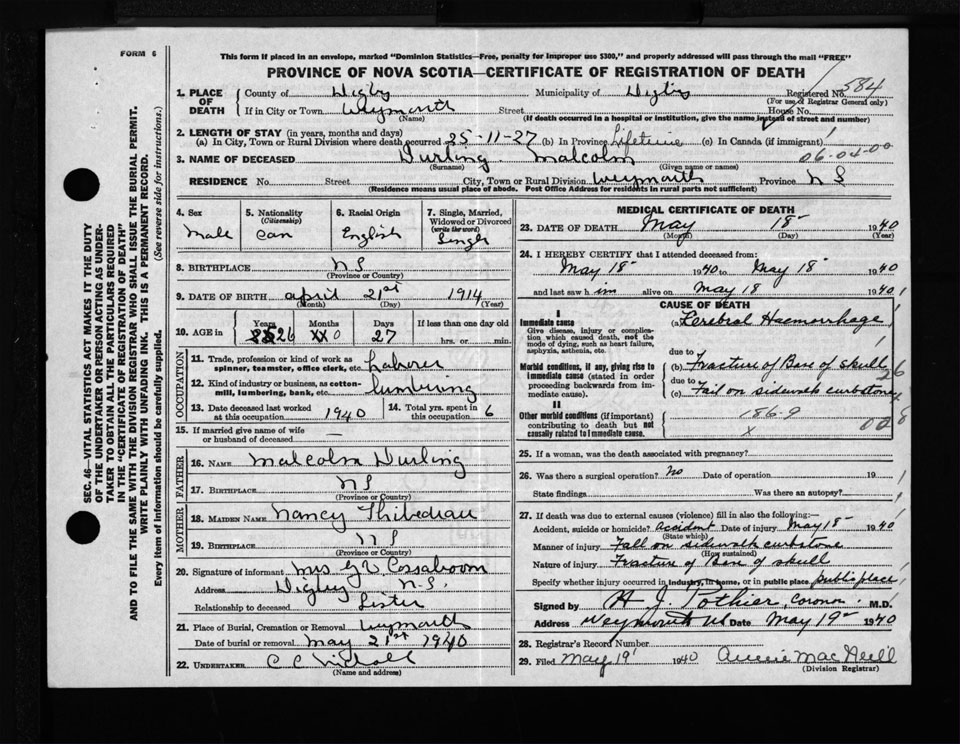 FORM 6
This form if placed in an envelope, marked "Dominion Statistics—Free, penalty for improper use $300," and properly addressed will pass through the mail "FREE"
PROVINCE OF NOVA SCOTIA—CERTIFICATE OF REGISTRATION OF DEATH
584
1. PLACE OF DEATH County of Digby Municipality of Digby Registered No.
(For use of Registrar General only)
If in City or Town Weymouth Street House No.
(Name) (If death occurred in a hospital or institution, give the name instead of street and number)
2. LENGTH OF STAY (in years, months and days)
(a) In City, Town or Rural Division where death occurred 25-11-27 (b) In Province Lifetime (c) In Canada (if immigrant)
06-04-00
3. NAME OF DECEASED Durling Malcolm
(Surname) (Given name or names)
RESIDENCE No. Street City, Town or Rural Division Weymouth Province N S
(Residence means usual place of abode. Post Office Address for residents in rural parts not sufficient)
4. Sex Male
5. Nationality (Citizenship) Can
6. Racial Origin English
7. Single, Married, Widowed or Divorced (write the word) Single
8. BIRTHPLACE N S
(Province or Country)
9. DATE OF BIRTH April 21st 1914
(Month) (Day) (Year)
10. AGE in Years 26 Months 0 Days 27 If less than one day old hrs. or min.
OCCUPATION
11. Trade, profession or kind of work as spinner, teamster, office clerk, etc. Laborer
12. Kind of industry or business, as cotton-mill, lumbering, bank, etc. Lumbering
13. Date deceased last worked at this occupation 1940
14. Total yrs. spent in this occupation 6
15. If married give name of wife or husband of deceased —
FATHER
16. NAME Malcolm Durling
17. BIRTHPLACE N S
(Province or Country)
MOTHER
18. MAIDEN NAME Nancy Thibedeau
19. BIRTHPLACE N S
(Province or Country)
20. Signature of informant Mrs G W Cossaboom
Address Digby N.S.
Relationship to deceased Sister
21. Place of Burial, Cremation or Removal Weymouth
Date of burial or removal May 21st 1940
22. UNDERTAKER C C
(Name and address)
MEDICAL CERTIFICATE OF DEATH
23. DATE OF DEATH May 18 1940
(Month) (Day) (Year)
24. I HEREBY CERTIFY that I attended deceased from:
May 18 1940 to May 18 1940
and last saw h im alive on May 18 1940
CAUSE OF DEATH
I
Immediate cause
Give disease, injury or complication which caused death, not the mode of dying, such as heart failure, asphyxia, asthenia, etc.
(a) Cerebral Haemorrhage
Morbid conditions, if any, giving rise to immediate cause (stated in order proceeding backwards from immediate cause).
due to
(b) Fracture of Base of skull
due to
(c) Fall on sidewalk curbstone
II
Other morbid conditions (if important) contributing to death but not causally related to immediate cause.
186-9
x
25. If a woman, was the death associated with pregnancy?
26. Was there a surgical operation? No Date of operation 19
State findings Was there an autopsy?
27. If death was due to external causes (violence) fill in also the following:—
Accident, suicide or homicide? Accident Date of injury May 18 1940
(State which)
Manner of injury Fall on sidewalk curbstone
(How sustained)
Nature of injury Fracture of Base of skull
Specify whether injury occurred in industry, in home, or in public place public place
Signed by H J Pothier, Coroner M.D.
Address Weymouth NS Date May 19 1940
28. Registrar's Record Number
29. Filed May 19 1940
(Division Registrar)
SEC. 46—VITAL STATISTICS ACT MAKES IT THE DUTY
OF THE UNDERTAKER OR PERSON ACTING AS UNDER-
TAKER TO OBTAIN ALL THE PARTICULARS REQUIRED
IN THE "CERTIFICATE OF REGISTRATION OF DEATH"
AND TO FILE THE SAME WITH THE DIVISION REGISTRAR WHO SHALL ISSUE THE BURIAL PERMIT.
WRITE PLAINLY WITH UNFADING INK. THIS IS A PERMANENT RECORD.
Every item of information should be carefully supplied. (See reverse side for instructions.)